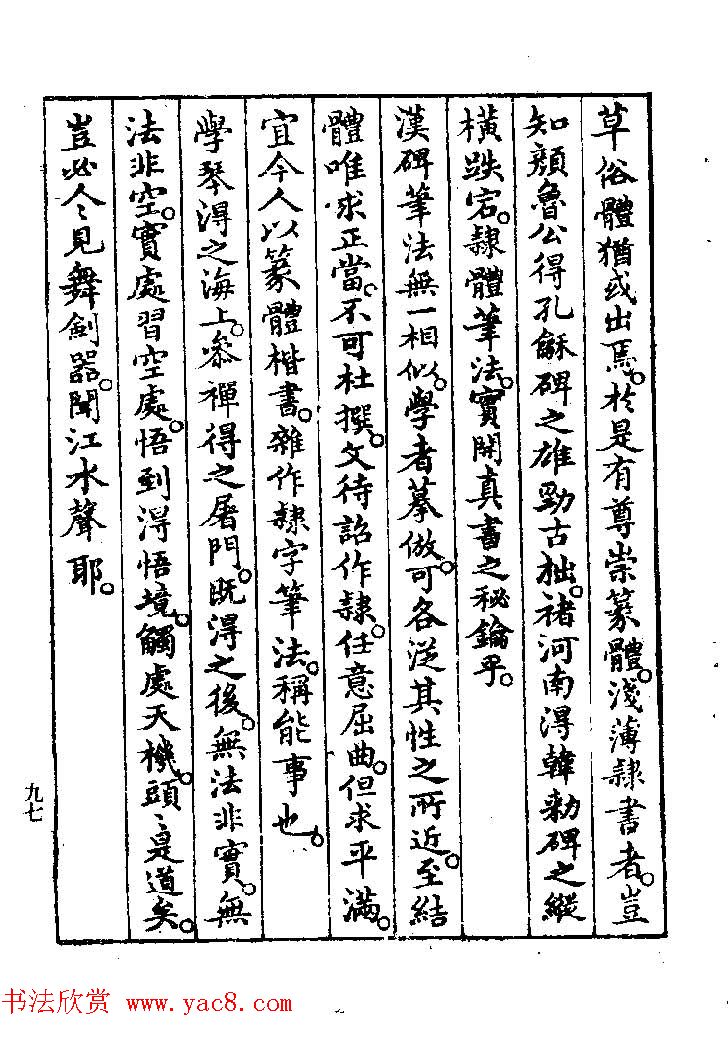 草俗體猶或出焉。於是有尊崇篆體。淺薄隸書者。豈
知顏魯公得孔龢碑之雄勁古拙。褚河南得韓勅碑之縱
橫跌宕。隸體筆法。實開真書之秘鑰乎。
漢碑筆法無一相似。學者摹倣。可各從其性之所近。至結
體唯求正當。不可杜撰。文待詔作隸。任意屈曲。但求平滿。
宜今人以篆體楷書。雜作隸字筆法。稱能事也。
學琴得之海上。參禪得之屠門。既得之後。無法非實。無
法非空。實處習空處。悟到得悟境。觸處天機。頭〻是道矣。
豈必人〻見舞劍器。聞江水聲耶。
九七
书法欣赏 www.yac8.com